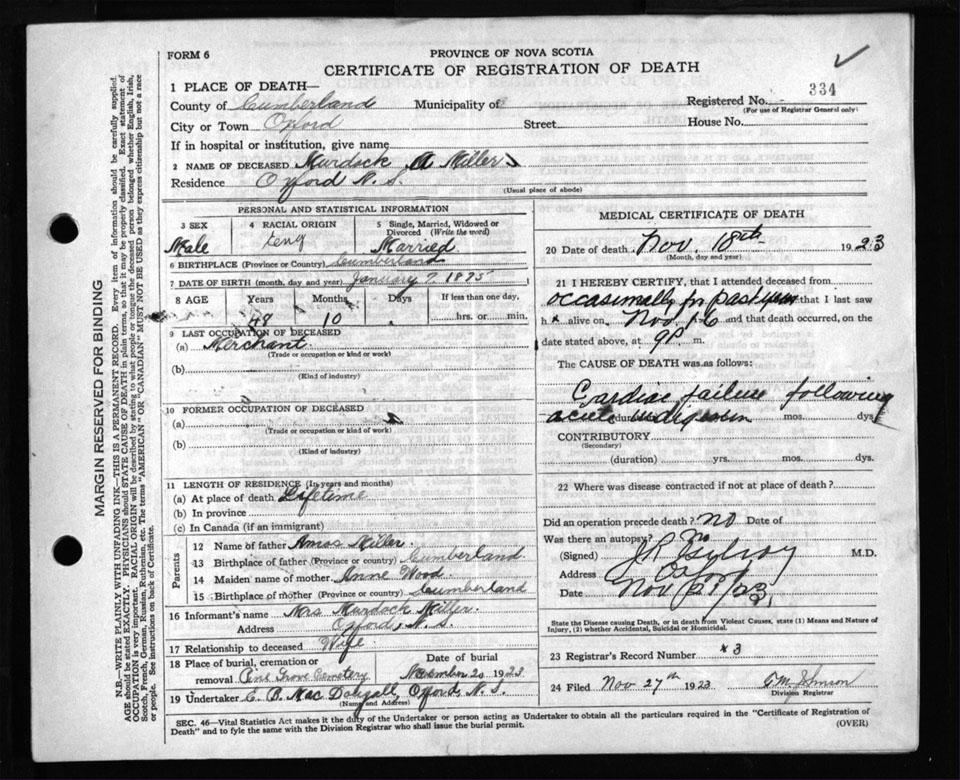 FORM 6
PROVINCE OF NOVA SCOTIA
CERTIFICATE OF REGISTRATION OF DEATH
1 PLACE OF DEATH—
County of Cumberland Municipality of Registered No. 334
(For use of Registrar General only)
City or Town Oxford Street House No.
If in hospital or institution, give name
2 NAME OF DECEASED Murdock A Miller
Residence Oxford N. S.
(Usual place of abode)
PERSONAL AND STATISTICAL INFORMATION
3 SEX 4 RACIAL ORIGIN 5 Single, Married, Widowed or
Divorced (Write the word)
Male Married
6 BIRTHPLACE (Province or Country) Cumberland
7 DATE OF BIRTH (month, day and year) January 7 1875
8 AGE Years Months Days If less than one day,
48 10 hrs. or min.
9 LAST OCCUPATION OF DECEASED
(a) Merchant
(Trade or occupation or kind or work)
(b)
(Kind of industry)
10 FORMER OCCUPATION OF DECEASED
(a)
(Trade or occupation or kind of work)
(b)
(Kind of industry)
11 LENGTH OF RESIDENCE (In years and months)
(a) At place of death Lifetime
(b) In province
(c) In Canada (if an immigrant)
Parents
12 Name of father Amos Miller
13 Birthplace of father (Province or country) Cumberland
14 Maiden name of mother Anne Wood
15 Birthplace of mother (Province or country) Cumberland
16 Informant's name Mrs Murdock Miller
Address Oxford, N. S.
17 Relationship to deceased Wife
18 Place of burial, cremation or Date of burial
removal Pine Grove Cemetery November 20 1923
19 Undertaker C. B. MacDougall, Oxford, N. S.
(Name and Address)
MEDICAL CERTIFICATE OF DEATH
20 Date of death Nov. 18th 1923
(Month, day and year)
21 I HEREBY CERTIFY, that I attended deceased from
occasionally for past year that I last saw
h alive on Nov 16 and that death occurred, on
date stated above, at 9 P. m.
The CAUSE OF DEATH was as follows:
Cardiac failure following
acute indigestion (duration) mos. dys.
CONTRIBUTORY
(Secondary)
(duration) yrs. mos. dys.
22 Where was disease contracted if not at place of death?
Did an operation precede death? no Date of
Was there an autopsy? No
(Signed) M.D.
Address Oxford
Date Nov 21/23
State the Disease causing Death, or in death from Violent Causes, state (1) Means and Nature of
Injury, (2) whether Accidental, Suicidal or Homicidal.
23 Registrar's Record Number 3
24 Filed Nov 27th 1923 Johnson
Division Registrar
SEC. 46—Vital Statistics Act makes it the duty of the Undertaker or person acting as Undertaker to obtain all the particulars required in the "Certificate of Registration of
Death" and to fyle the same with the Division Registrar who shall issue the burial permit. (OVER)
MARGIN RESERVED FOR BINDING
N.B.—WRITE PLAINLY WITH UNFADING INK—THIS IS A PERMANENT RECORD. Every item of information should be carefully supplied.
AGE should be stated EXACTLY. PHYSICIANS should STATE CAUSE OF DEATH in plain terms, so that it may be properly classified. Exact statement of
OCCUPATION is very important. RACIAL ORIGIN will be described by stating to what people or tongue the deceased person belonged whether English, Irish,
Scotch, French, German, Russian, Ruthenian, etc. The terms "AMERICAN" OR "CANADIAN" MUST NOT BE USED as they express citizenship but not a race
or people. See instructions on back of Certificate.